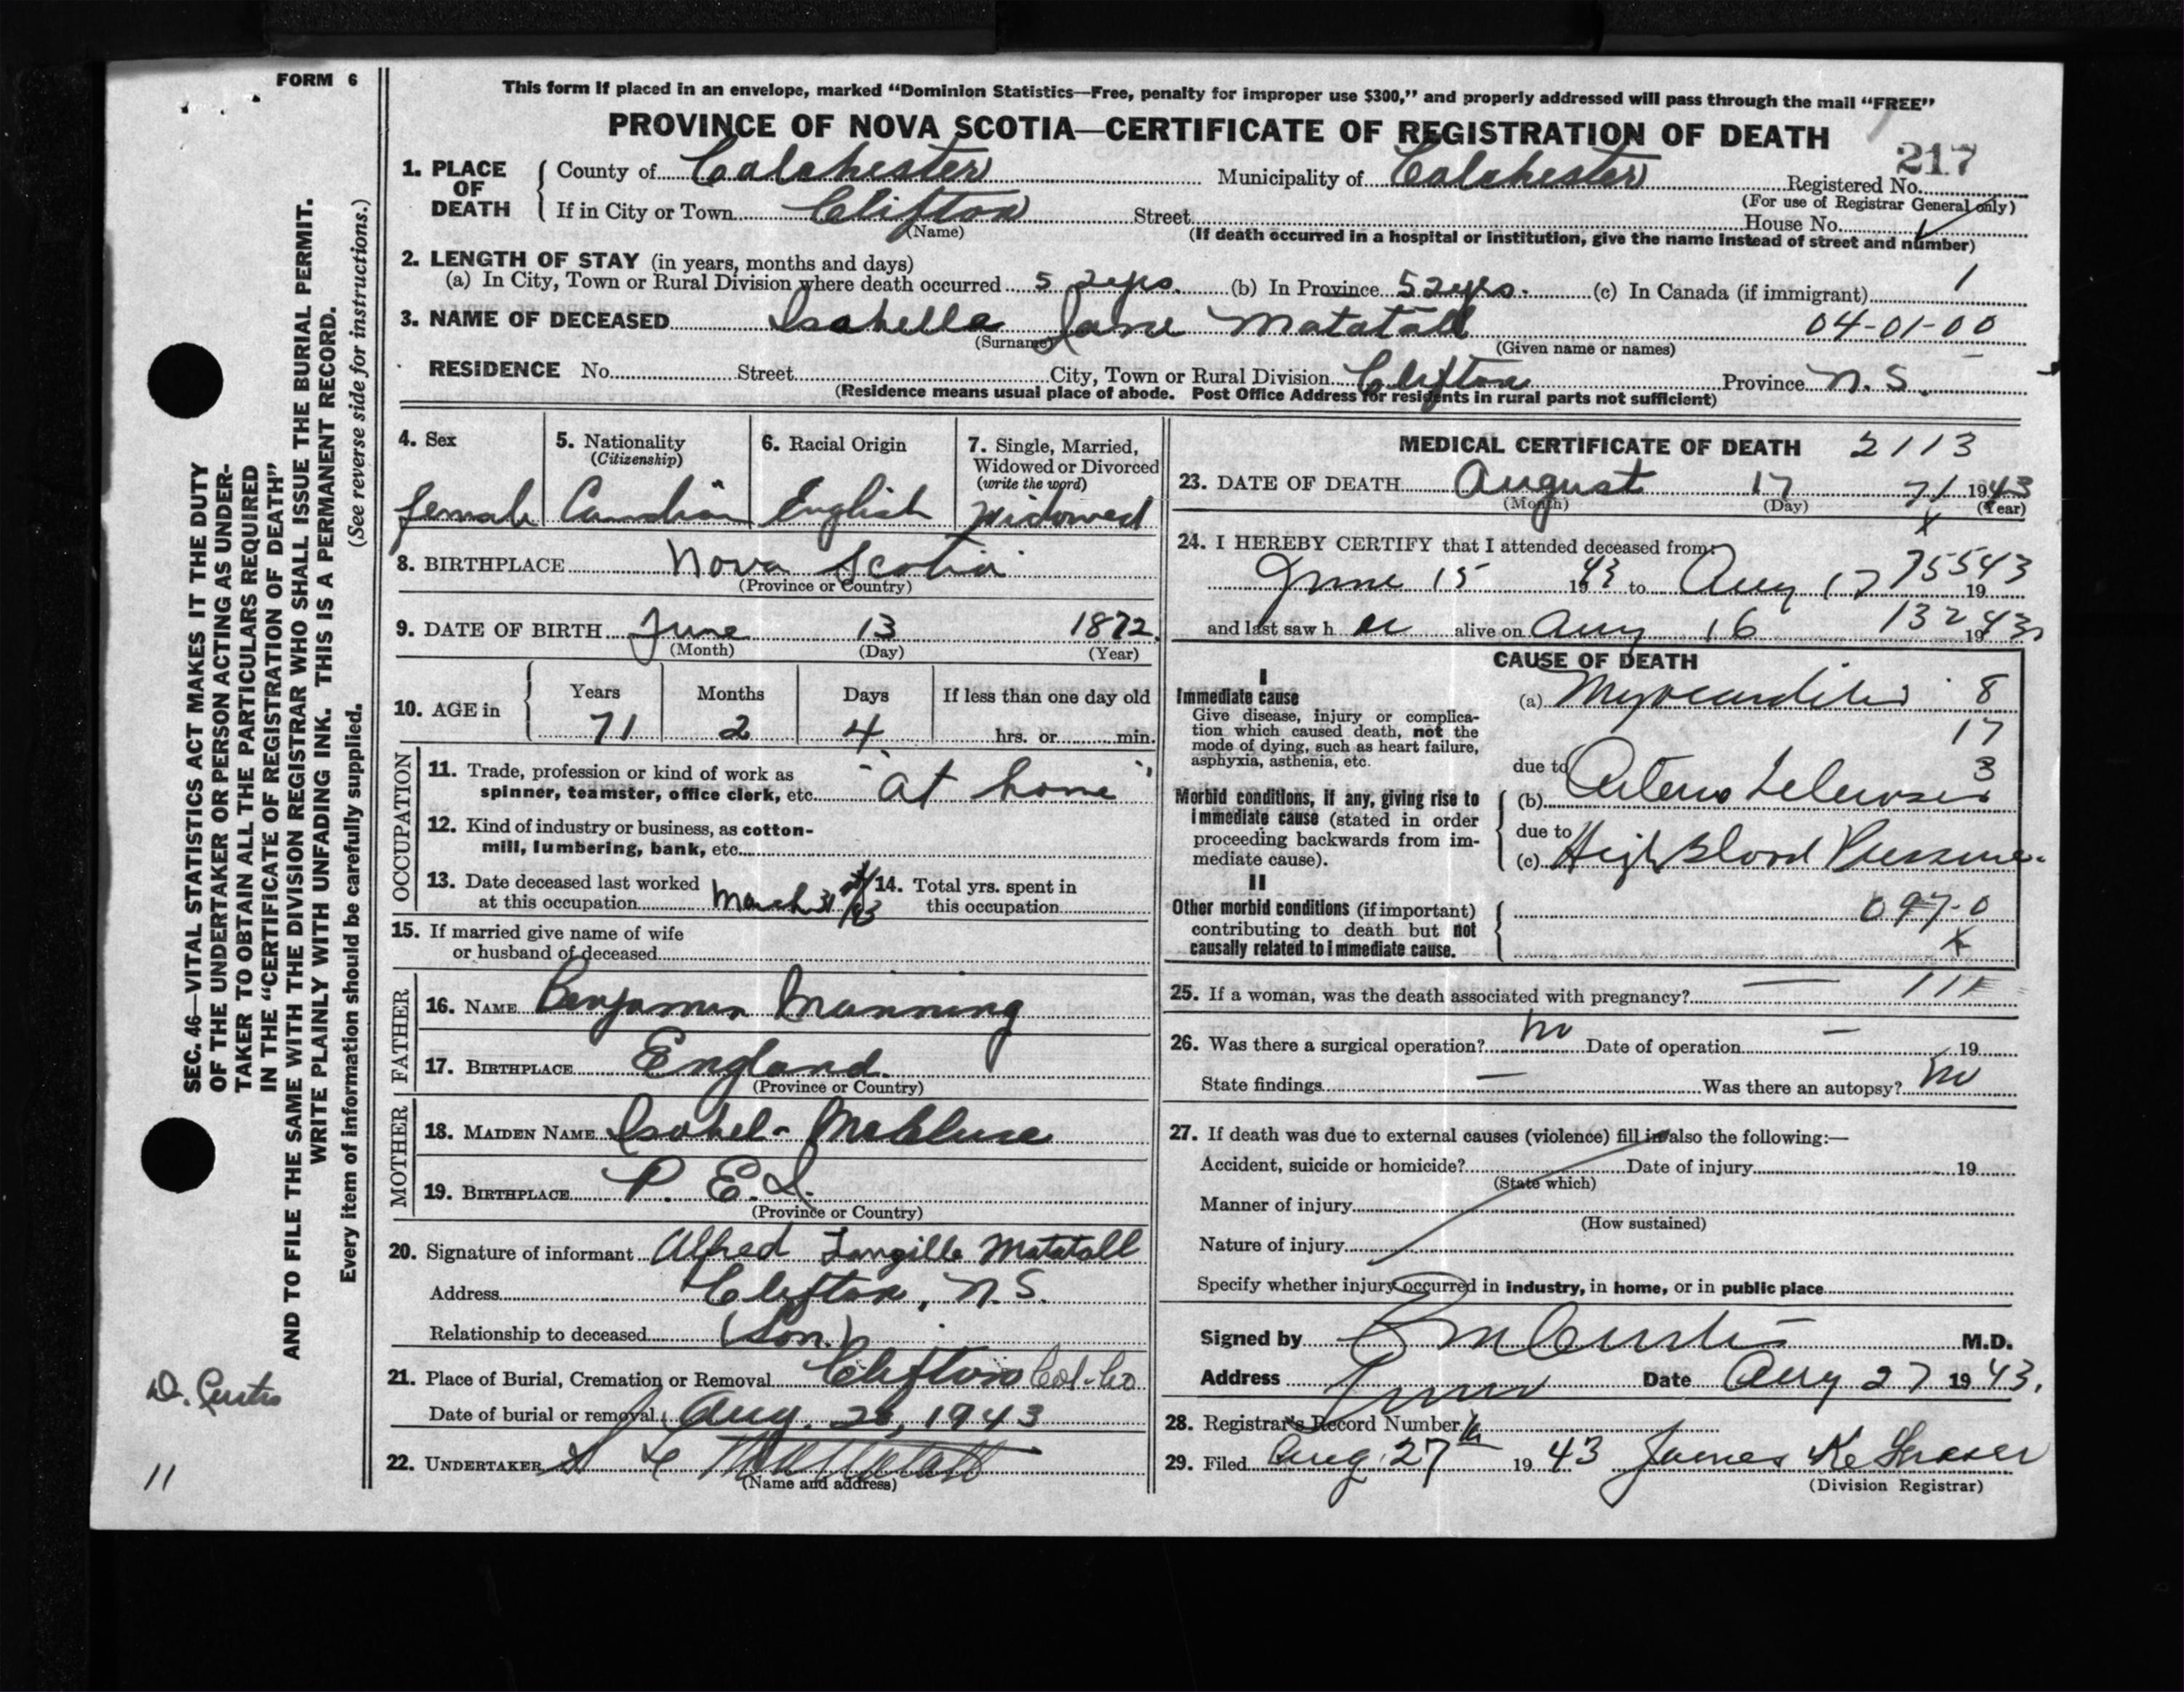 FORM 6
This form if placed in an envelope, marked “Dominion Statistics—Free, penalty for improper use $300,” and properly addressed will pass through the mail “FREE”
PROVINCE OF NOVA SCOTIA—CERTIFICATE OF REGISTRATION OF DEATH
217
1. PLACE OF DEATH
County of Colchester Municipality of Colchester Registered No.
(For use of Registrar General only)
If in City or Town Clifton Street House No.
(Name) (If death occurred in a hospital or institution, give the name instead of street and number)
2. LENGTH OF STAY (in years, months and days)
(a) In City, Town or Rural Division where death occurred 52 yrs. (b) In Province 52 yrs. (c) In Canada (if immigrant) 1
3. NAME OF DECEASED Isabella Jane Matatall 04-01-00
(Surname) (Given name or names)
RESIDENCE No. Street City, Town or Rural Division Clifton Province N. S.
(Residence means usual place of abode. Post Office Address for residents in rural parts not sufficient)
4. Sex
female
5. Nationality
(Citizenship)
Canadian
6. Racial Origin
English
7. Single, Married,
Widowed or Divorced
(write the word)
Widowed
8. BIRTHPLACE Nova Scotia
(Province or Country)
9. DATE OF BIRTH June 13 1872
(Month) (Day) (Year)
10. AGE in
Years Months Days If less than one day old
71 2 4 hrs. or min.
OCCUPATION
11. Trade, profession or kind of work as
spinner, teamster, office clerk, etc. "at home"
12. Kind of industry or business, as cotton-
mill, lumbering, bank, etc.
13. Date deceased last worked
at this occupation March 31st/43
14. Total yrs. spent in
this occupation
15. If married give name of wife
or husband of deceased
FATHER
16. NAME Benjamin Manning
17. BIRTHPLACE England
(Province or Country)
MOTHER
18. MAIDEN NAME Isabel - McClure
19. BIRTHPLACE P. E. I.
(Province or Country)
20. Signature of informant Alfred Langille Matatall
Address Clifton, N. S.
Relationship to deceased (Son)
21. Place of Burial, Cremation or Removal Clifton Col. Co
Date of burial or removal Aug. 20, 1943
22. UNDERTAKER
(Name and address)
MEDICAL CERTIFICATE OF DEATH 2113
23. DATE OF DEATH August 17 71 1943
(Month) (Day) (Year)
24. I HEREBY CERTIFY that I attended deceased from:
June 15 1943 to Aug 17 1943
755
and last saw her alive on Aug 16 1943
132
CAUSE OF DEATH
I
Immediate cause
Give disease, injury or complica-
tion which caused death, not the
mode of dying, such as heart failure,
asphyxia, asthenia, etc.
(a) Myocarditis 8
17
due to 3
Morbid conditions, if any, giving rise to
immediate cause (stated in order
proceeding backwards from im-
mediate cause).
(b) Arterio Sclerosis
due to
(c) High Blood Pressure.
II
Other morbid conditions (if important)
contributing to death but not
causally related to immediate cause.
097-0
x
25. If a woman, was the death associated with pregnancy? — 111
26. Was there a surgical operation? no Date of operation — 19
State findings — Was there an autopsy? no
27. If death was due to external causes (violence) fill in also the following:—
Accident, suicide or homicide? Date of injury 19
(State which)
Manner of injury
(How sustained)
Nature of injury
Specify whether injury occurred in industry, in home, or in public place
Signed by Curtis M.D.
Address Truro Date Aug 27 1943.
28. Registrar's Record Number
29. Filed Aug. 27th 1943 James K. Fraser
(Division Registrar)
SEC. 46—VITAL STATISTICS ACT MAKES IT THE DUTY
OF THE UNDERTAKER OR PERSON ACTING AS UNDER-
TAKER TO OBTAIN ALL THE PARTICULARS REQUIRED
IN THE “CERTIFICATE OF REGISTRATION OF DEATH”
AND TO FILE THE SAME WITH THE DIVISION REGISTRAR WHO SHALL ISSUE THE BURIAL PERMIT.
WRITE PLAINLY WITH UNFADING INK. THIS IS A PERMANENT RECORD.
Every item of information should be carefully supplied. (See reverse side for instructions.)
Dr. Curtis
11